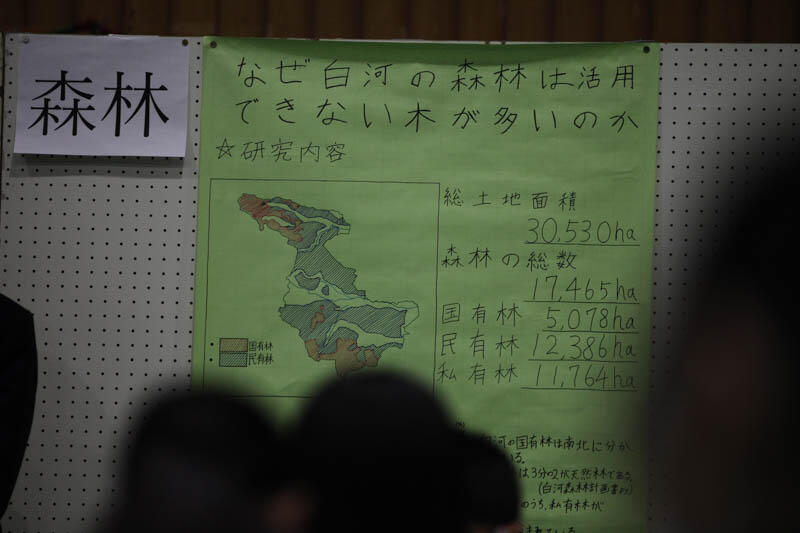 森林
なぜ白河の森林は活用
できない木が多いのか
☆研究内容
総土地面積
30,530ha
森林の総数
17,465ha
国有林 5,078ha
民有林 12,386ha
私有林 11,764ha
国有林
民有林
河の国有林は南北に分か
いる。
は3分の2が天然林である。
(白河森林計画書より)
のうち、私有林が
いる